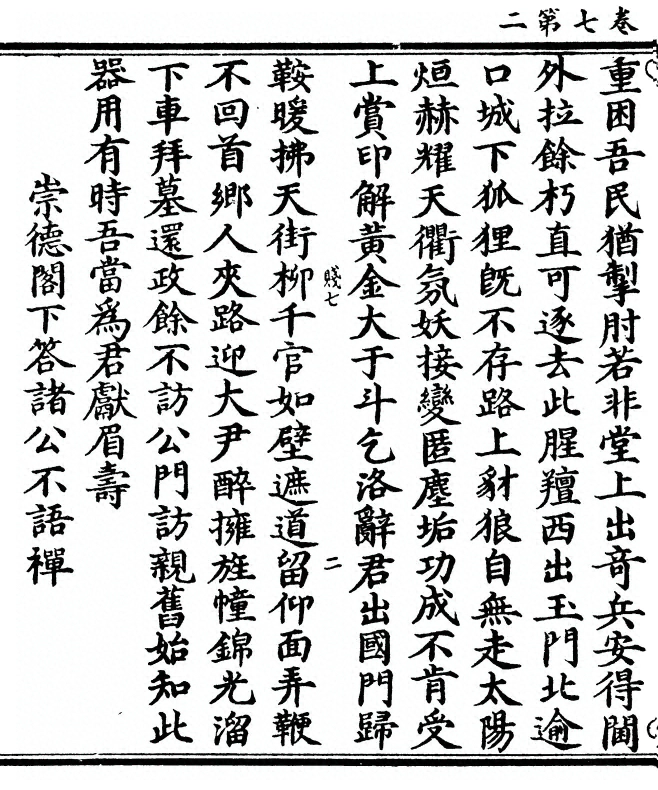 卷七第二
重困吾民猶掣肘若非堂上出奇兵安得閫
外拉餘朽直可逐去此腥羶西出玉門北逾
口城下狐狸旣不存路上豺狼自無走太陽
烜赫耀天衢氛妖接變匿塵垢功成不肯受
上賞印解黃金大于斗乞洛辭君出國門歸
牋七
二
鞍暖拂天街柳千官如壁遮道留仰面弄鞭
不回首鄉人夾路迎大尹醉擁旌幢錦光溜
下車拜墓還政餘不訪公門訪親舊始知此
器用有時吾當爲君獻眉壽
崇德閣下答諸公不語禪